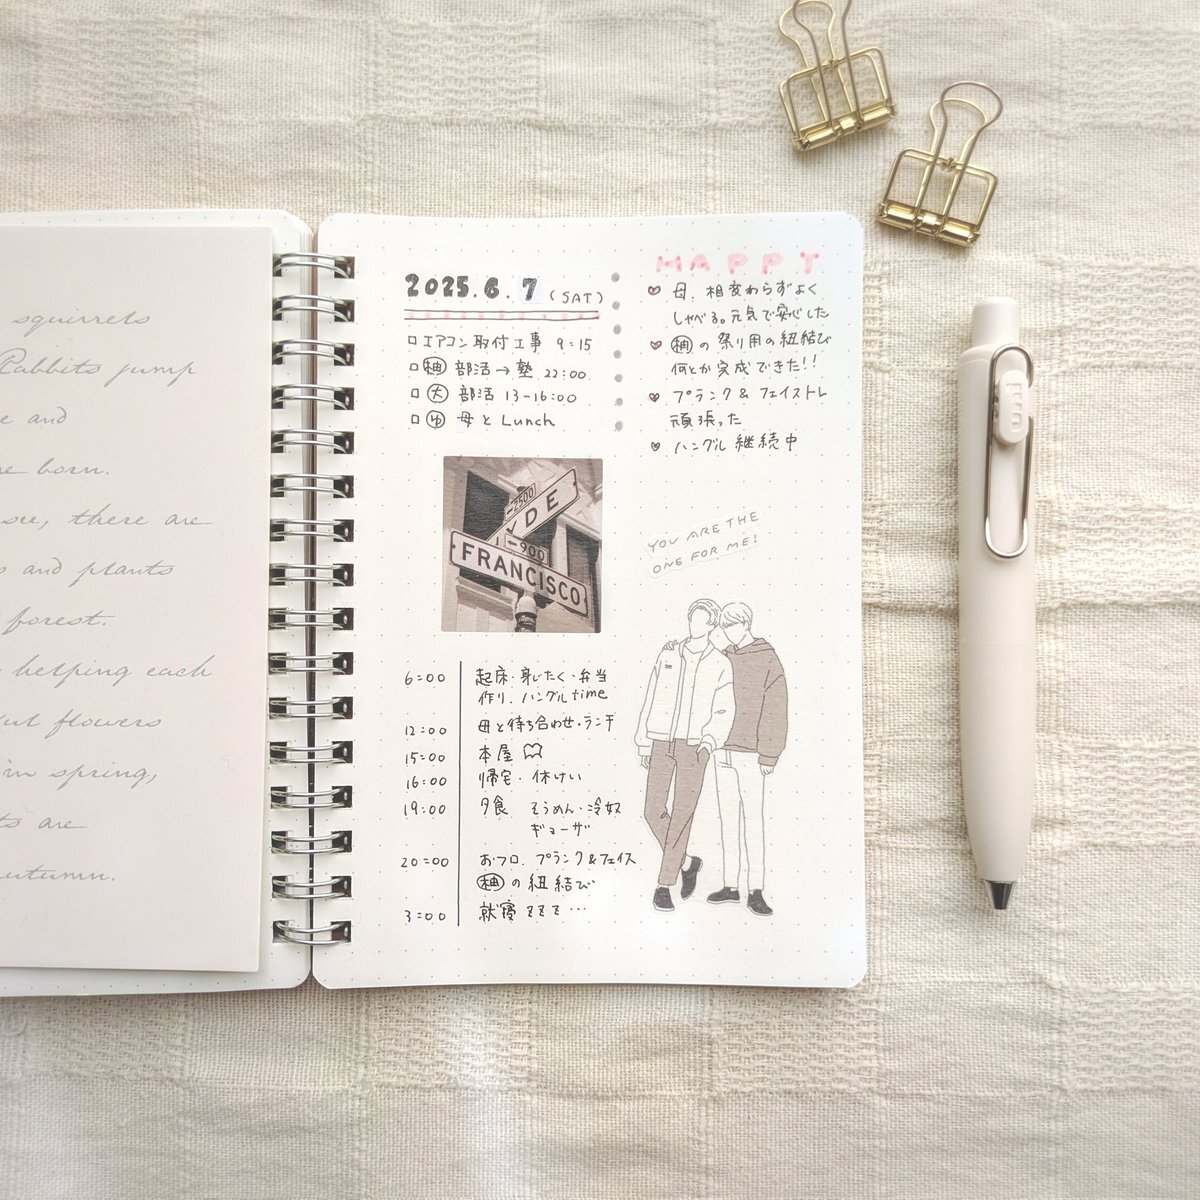 squirrels
Rabbits jump
and
born.
see, there are
and plants
forest.
helping each
flowers
in spring,
are
autumn.
2025.6.7 (SAT)
□エアコン取付工事 9:15
□柚 部活→塾 22:00
□大 部活 13-16:00
□ゆ 母とLunch
HAPPY
♡ 母、相変わらずよく
しゃべる。元気で安心した
♡ 柚の祭り用の紐結び
何とか完成できた!!
♡ プランク&フェイストレ
頑張った
♡ ハングル継続中
←2500
HYDE
←900
FRANCISCO
YOU ARE THE
ONE FOR ME!
6:00 起床・身じたく・弁当
作り、ハングルtime
12:00 母と待ち合わせ・ランチ
15:00 本屋
16:00 帰宅・休けい
19:00 夕食 そうめん・冷奴
ギョーザ
20:00 おフロ、プランク&フェイス
柚の紐結び
3:00 就寝 zzz…